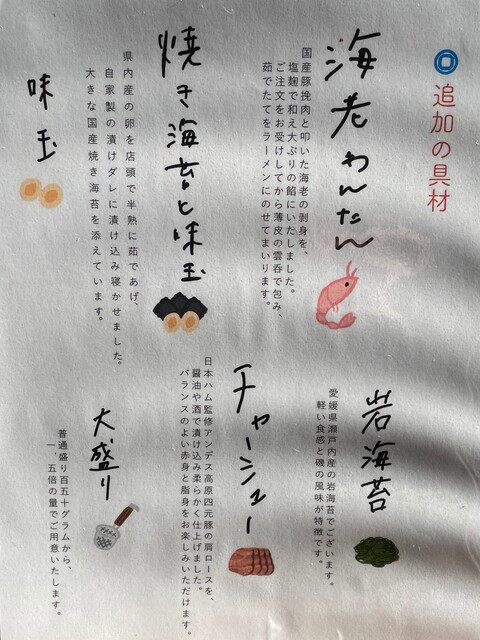 追加の具材
海老わんたん
国産豚挽肉と叩いた海老の剥身を、
塩麹で和え大ぶりの餡にいたしました。
ご注文をお受けしてから薄皮の雲呑で包み、
茹でたてをラーメンにのせてまいります。
焼き海苔と味玉
県内産の卵を店頭で半熟に茹であげ、
自家製の漬けダレに漬け込み寝かせました。
大きな国産焼き海苔を添えています。
味玉
岩海苔
愛媛県瀬戸内産の岩海苔でございます。
軽い食感と磯の風味が特徴です。
チャーシュー
日本ハム監修アンデス高原四元豚の肩ロースを、
醤油や酒で漬け込み柔らかく仕上げました。
バランスのよい赤身と脂身をお楽しみいただけます。
大盛り
普通盛り百五十グラムから、
一、五倍の量でご用意いたします。